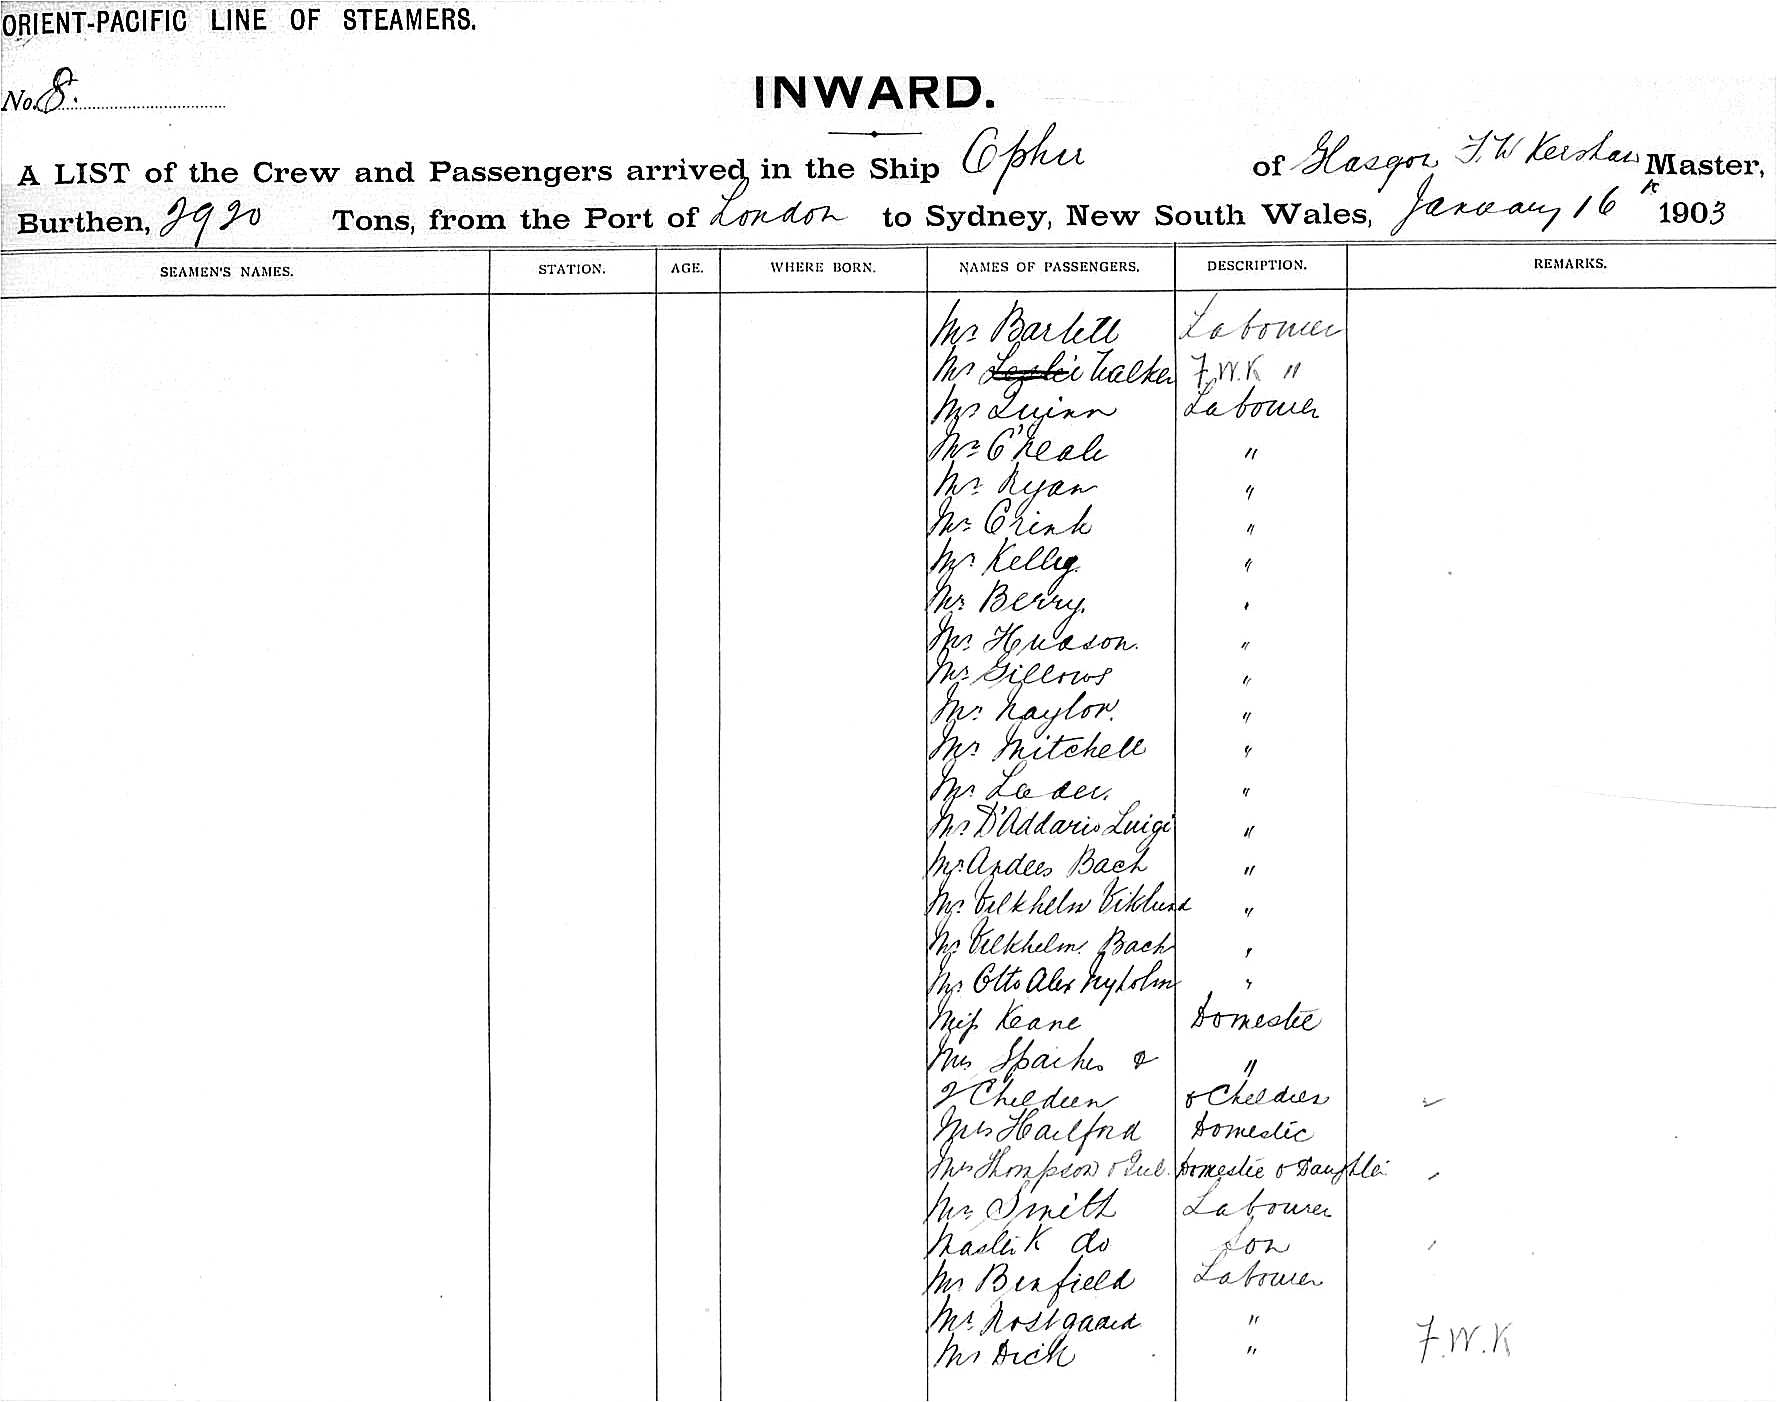 ORIENT-PACIFIC LINE OF STEAMERS.
No. 8.
INWARD.
A LIST of the Crew and Passengers arrived in the Ship Ophir of Glasgow F. W Kershaw Master,
Burthen, 2920 Tons, from the Port of London to Sydney, New South Wales, January 16 1903
SEAMEN'S NAMES. STATION. AGE. WHERE BORN. NAMES OF PASSENGERS. DESCRIPTION. REMARKS.
Mr Bartlett Labourer
Mr Walker F.W.K "
Mr Quinn Labourer
Mr O'Neale "
Mr Ryan "
Mr Crink "
Mr Kelly. "
Mr Berry. "
Mr Hudson. "
Mr Gillows "
Mr Naylor. "
Mr Mitchell "
Mr Lader. "
Mr D'Addario Luigi "
Mr Anders Bach "
Mr Vilkhelm Viklund "
Mr Vilkhelm Bach "
Mr Otto Alex Nyholm "
Miss Keane Domestic
Mrs Sparkes & "
2 Children & Children
Mrs Hailford Domestic
Mrs Thompson & Domestic & Daughter
Mr Smith Labourer
Master K do Son
Mr Benfield Labourer
Mr Rostgaard "
Mr Dick " F.W.K